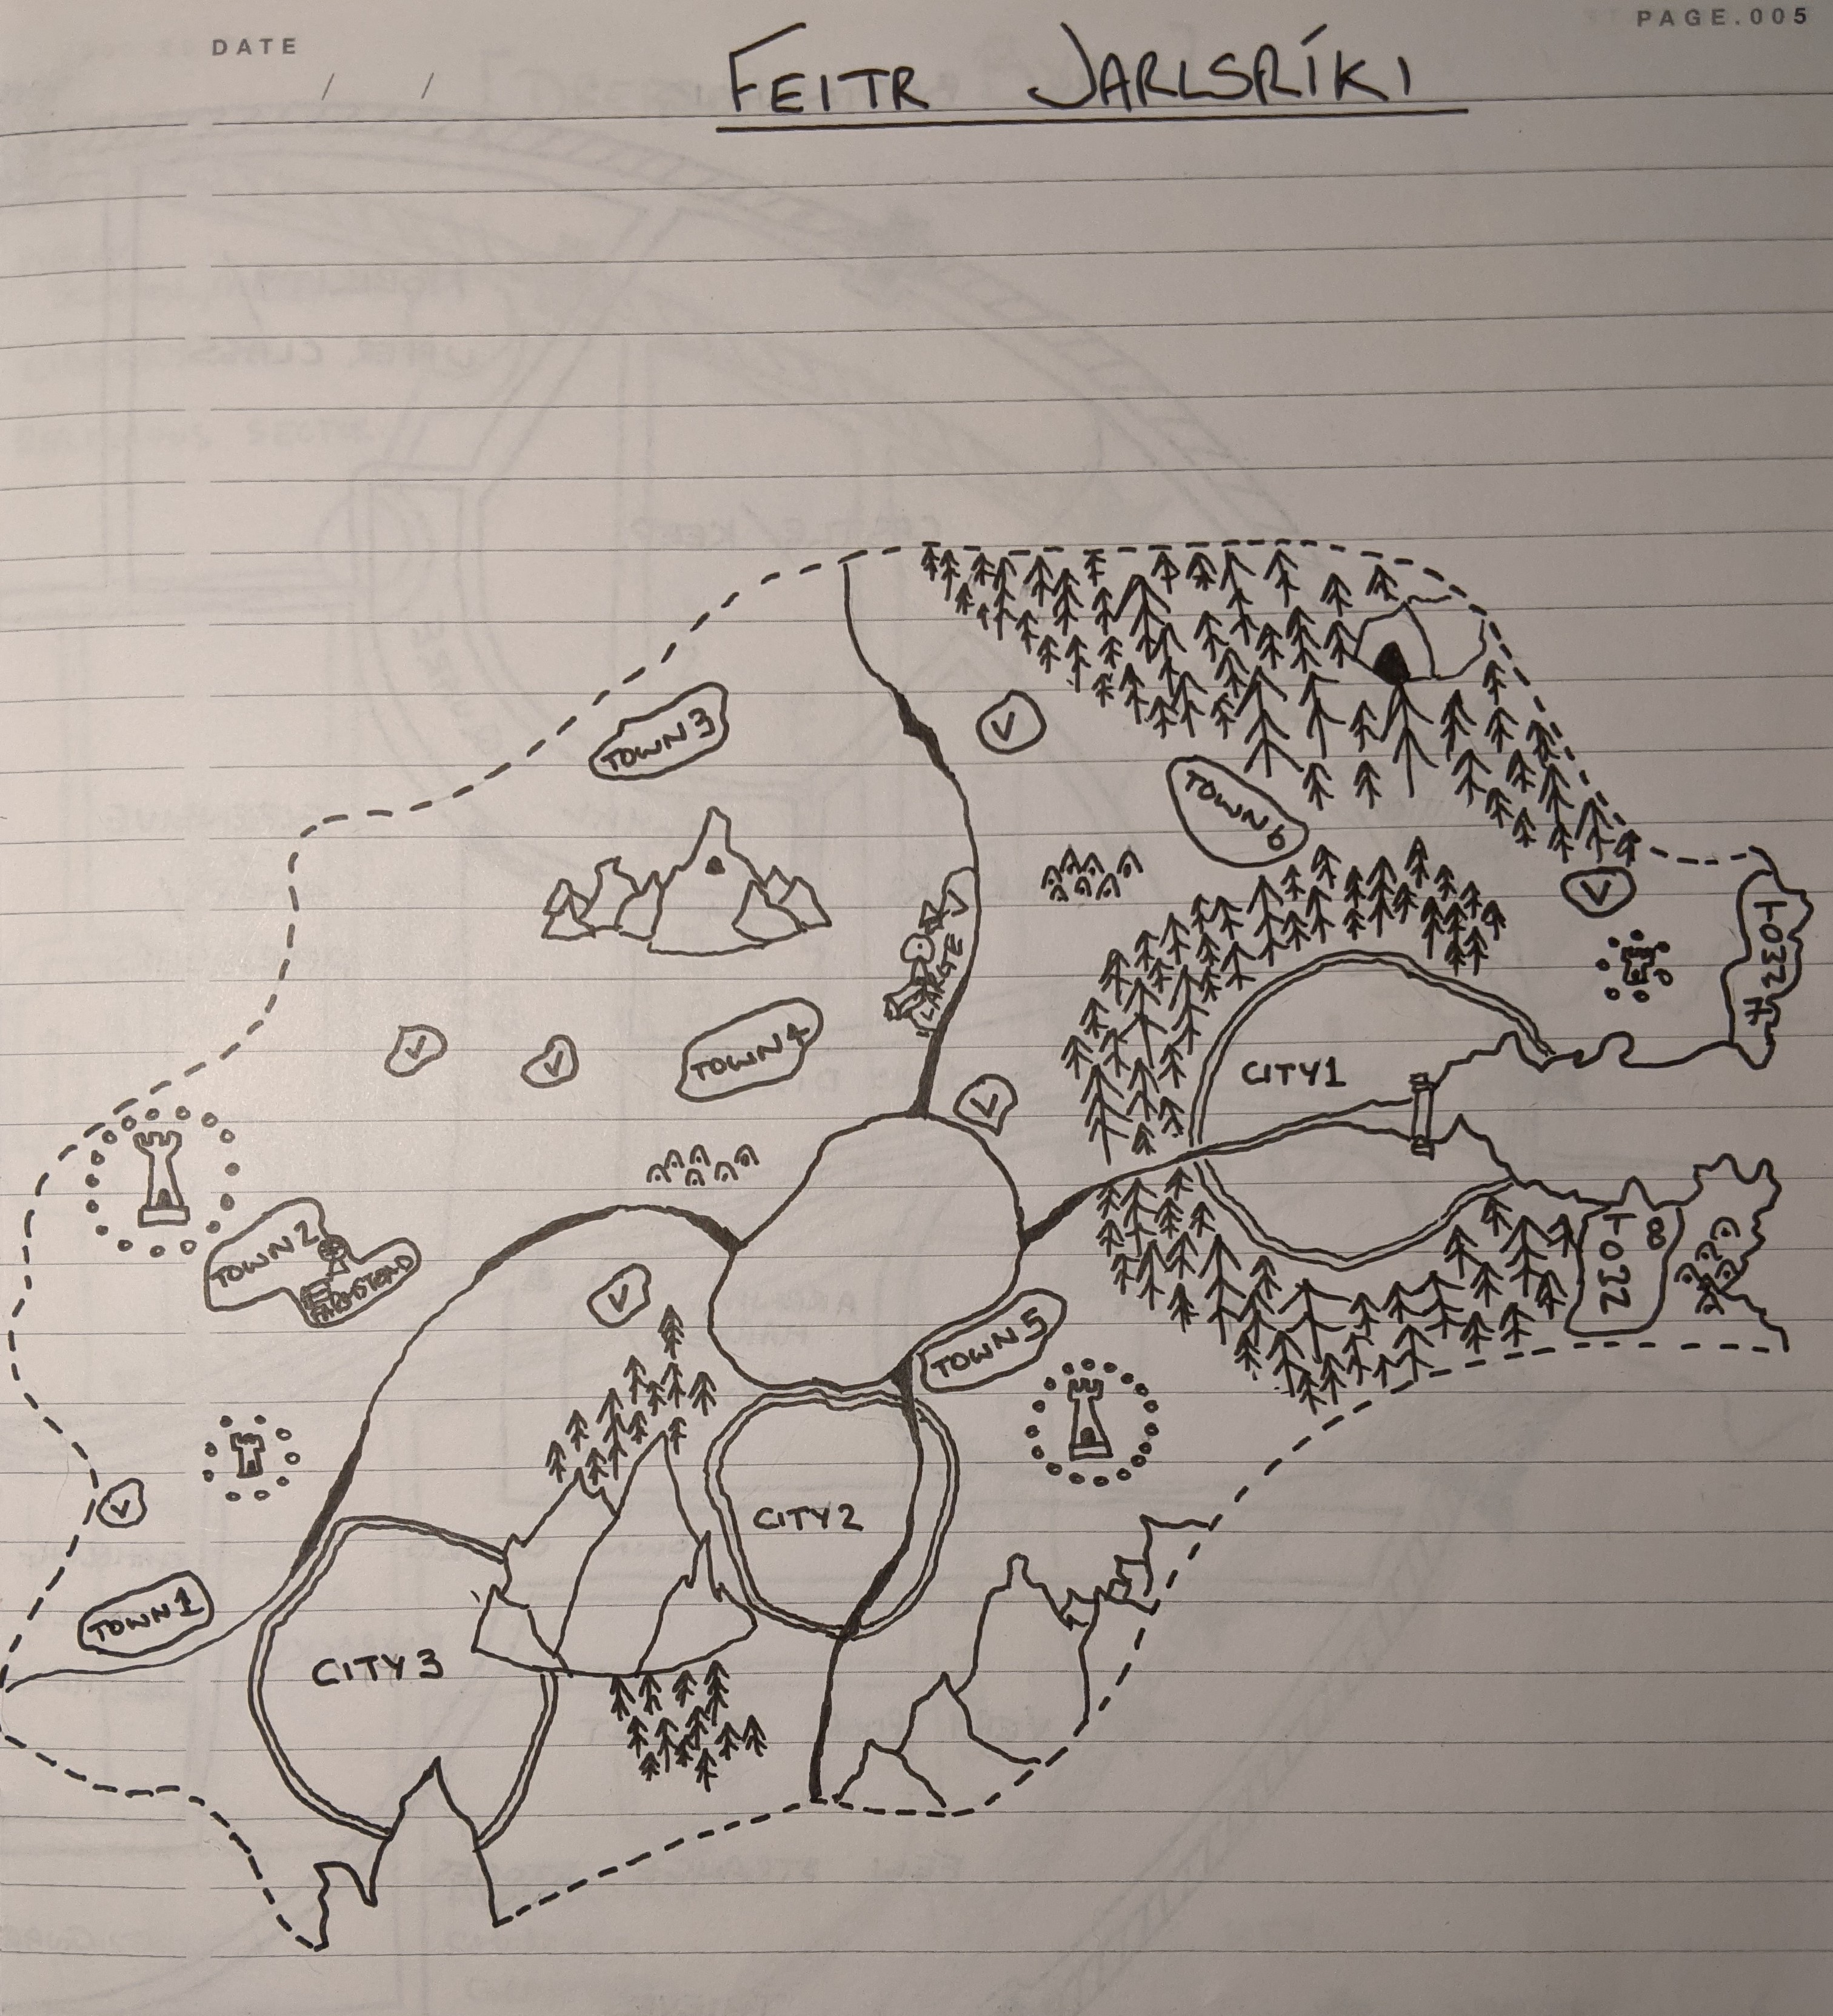 DATE
/ /
PAGE.005
FEITR JARLSRÍKI
TOWN 3
V
TOWN 6
V
TOWN 7
V
V
TOWN 4
V
CITY 1
TOWN 2
TOWN 8
V
TOWN 5
V
CITY 2
TOWN 1
CITY 3